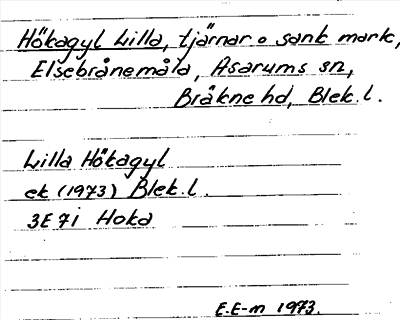 Hökagyl Lilla, tjärnar o sank mark,
Elsebrånemåla, Asarums sn,
Bräkne hd, Blek. l.
Lilla Hökagyl
ek (1973) Blek. l.
3E 7i Hoka
E.E-m 1973.